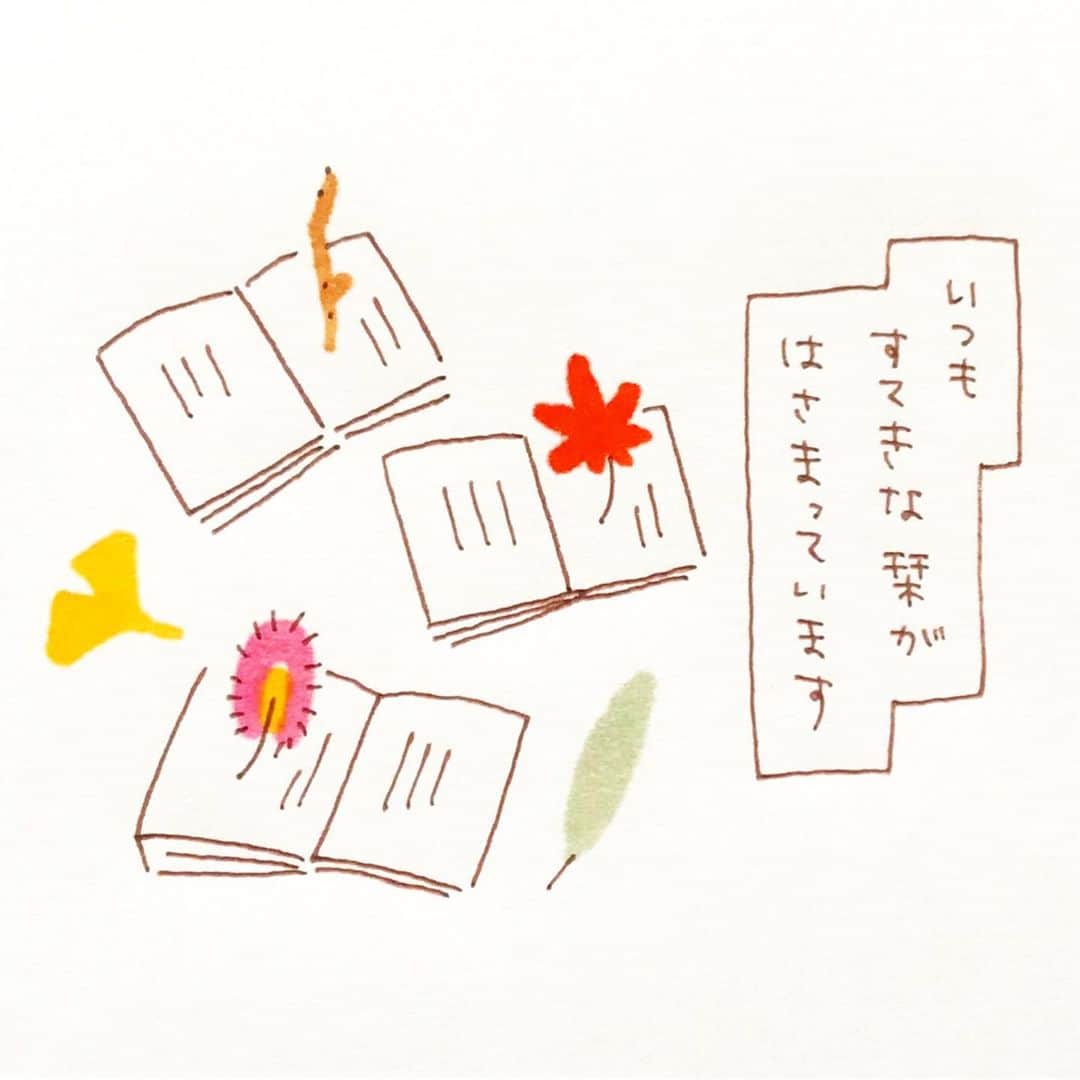 いつも
すてきな栞が
はさまっています